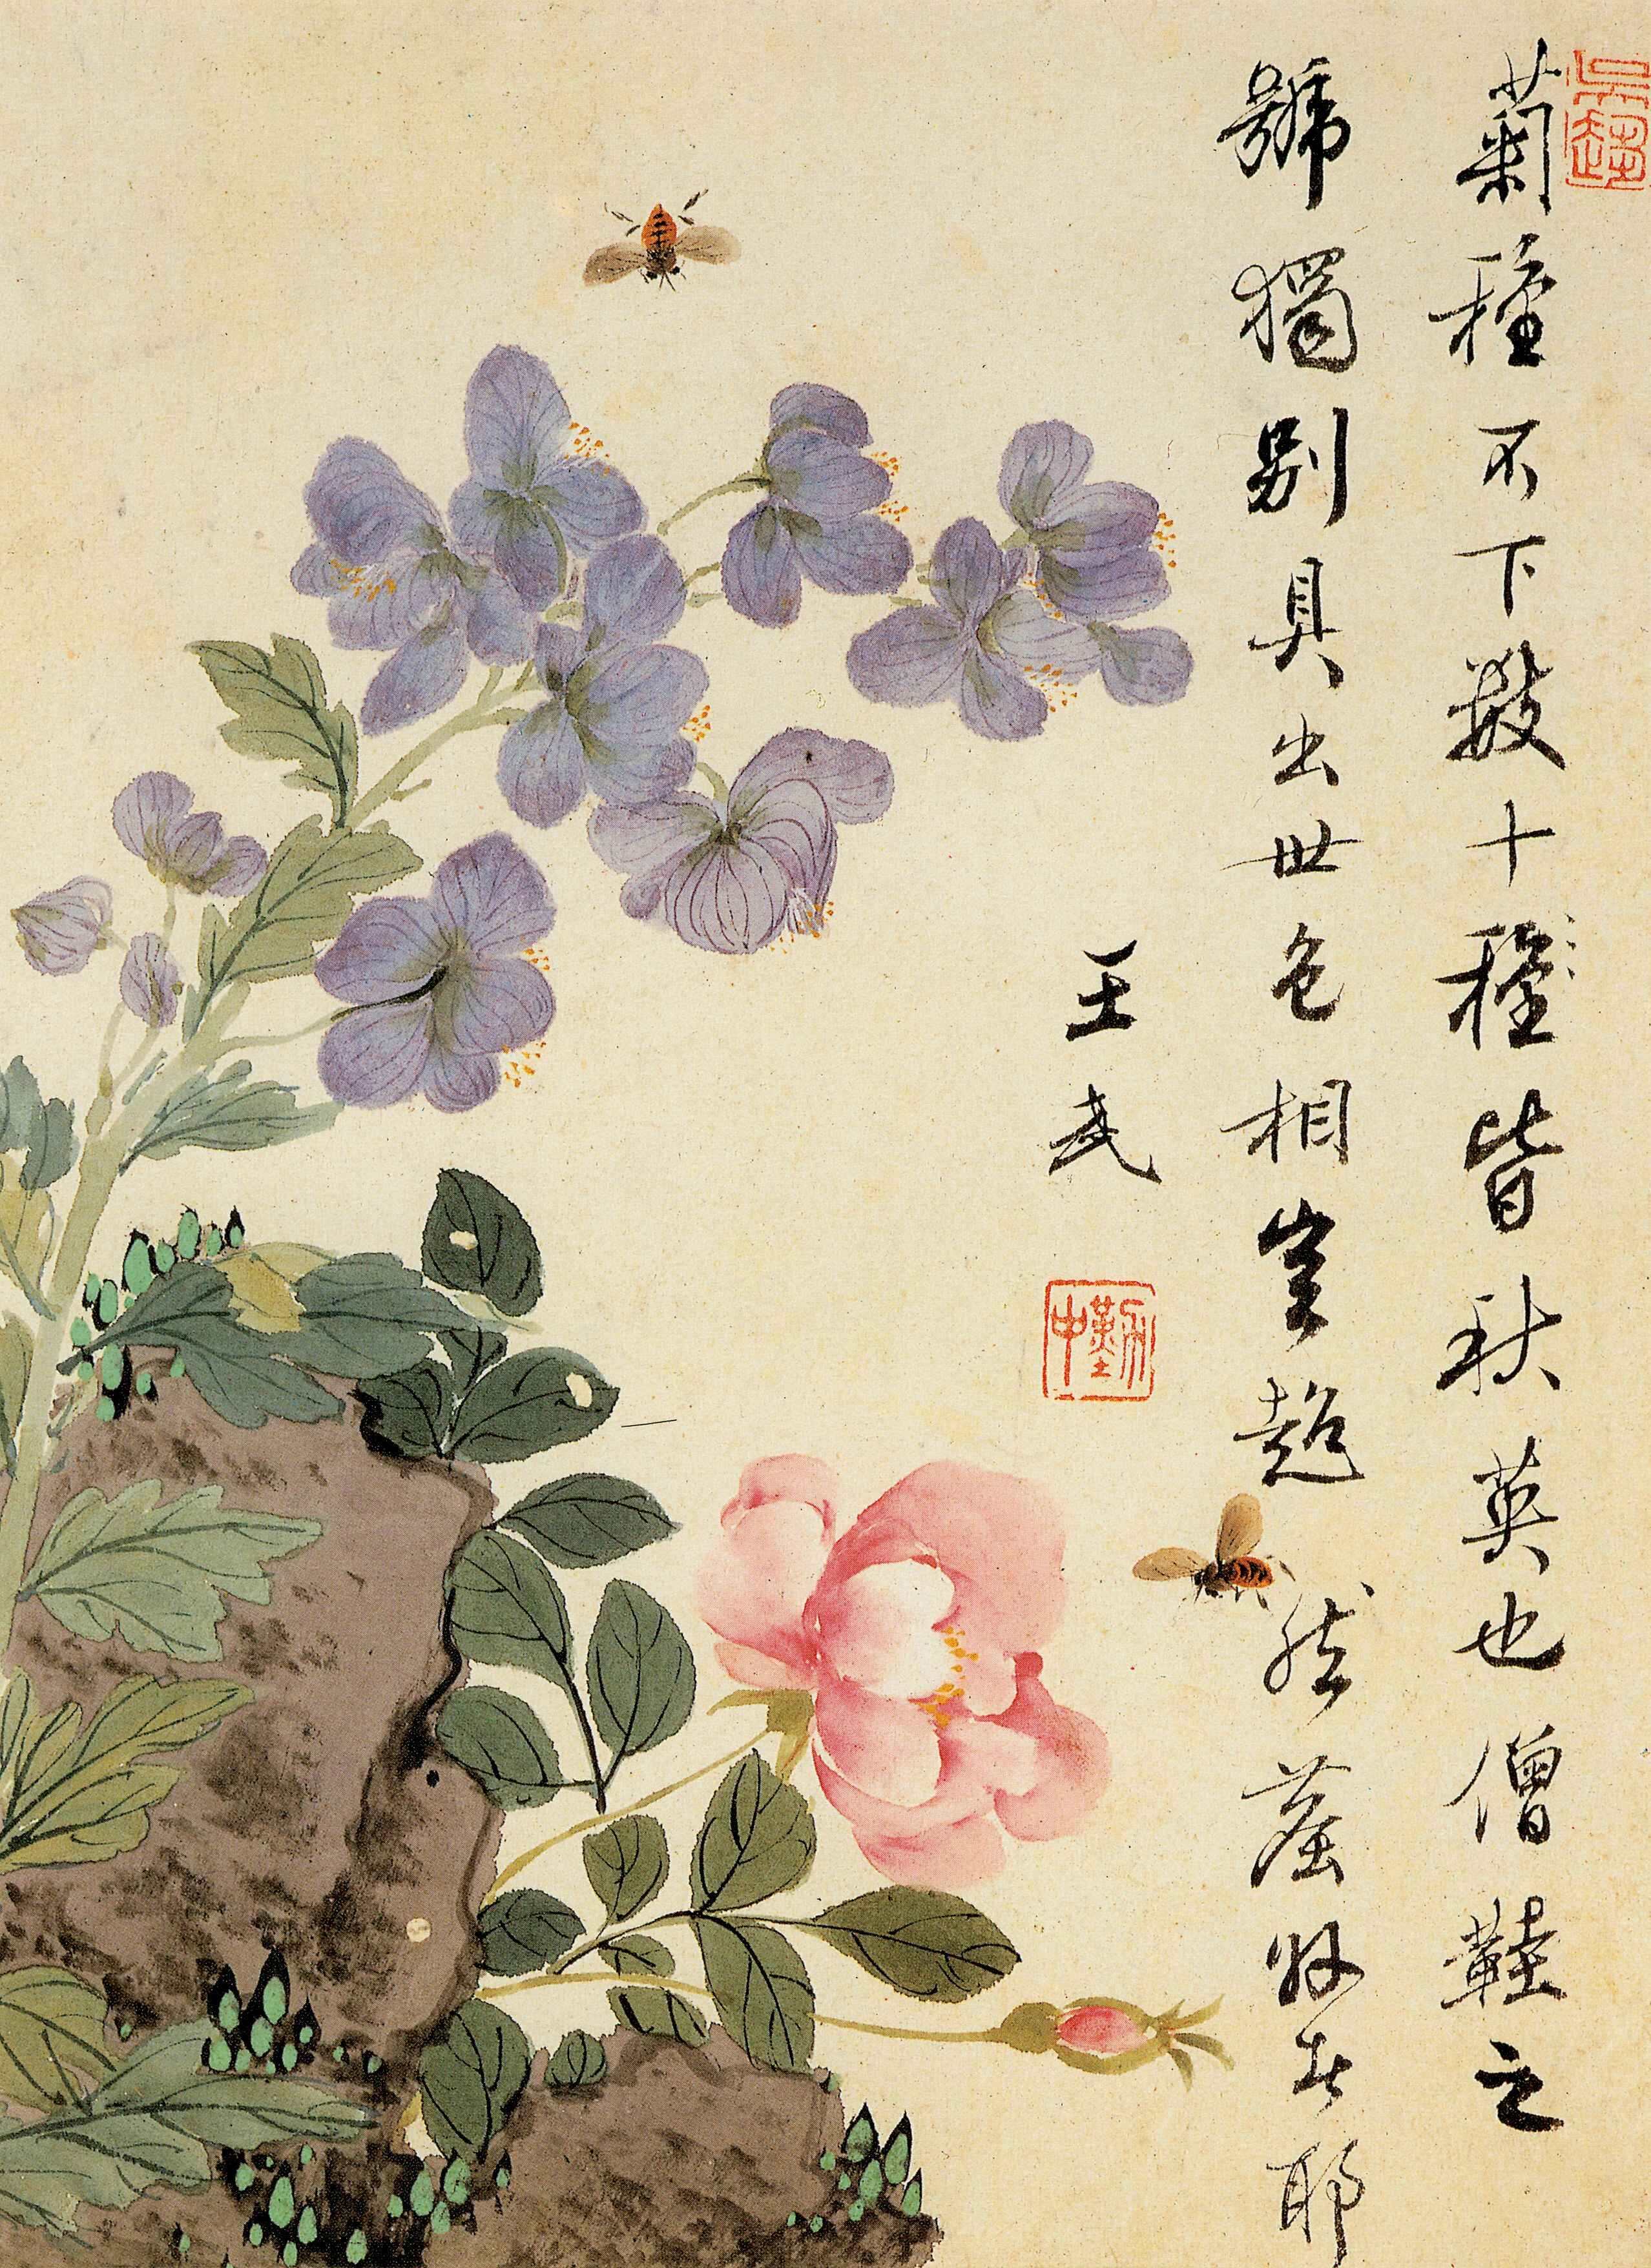 吳趨
菊種不下數十種皆秋英也僧鞋之
號獨別具出世色相豈超然塵者耶
王武
勤中